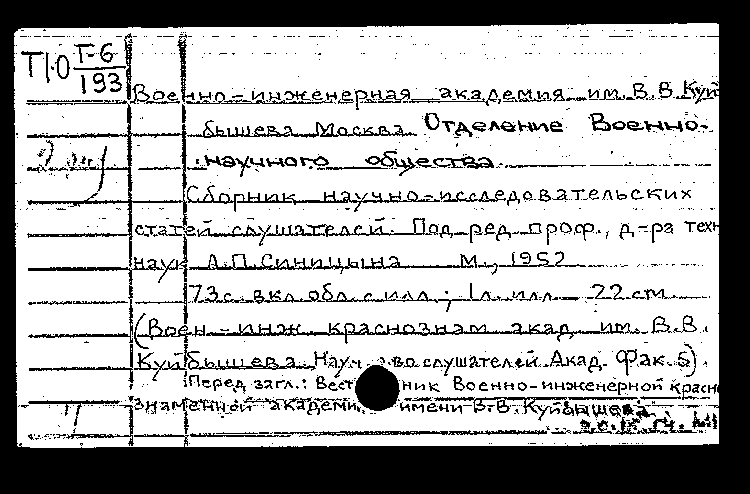 Т1·0 Т-6
193
Военно-инженерная академия им. В.В. Куй
бышева Москва Отделение Военно-
научного общества.
Сборник научно-исследовательских
статей слушателей. Под ред. проф., д-ра техн
наук А.П. Синицына М., 1952
73 с. вкл. обл. с илл.; 1 л. илл. 22 см.
(Воен-инж. краснознам акад. им. В.В.
Куйбышева. Науч. о-во слушателей. Акад. Фак. 5)
Перед загл.: Вест ник Военно-инженерной красно
знаменной академи имени В.В. Куйбышева